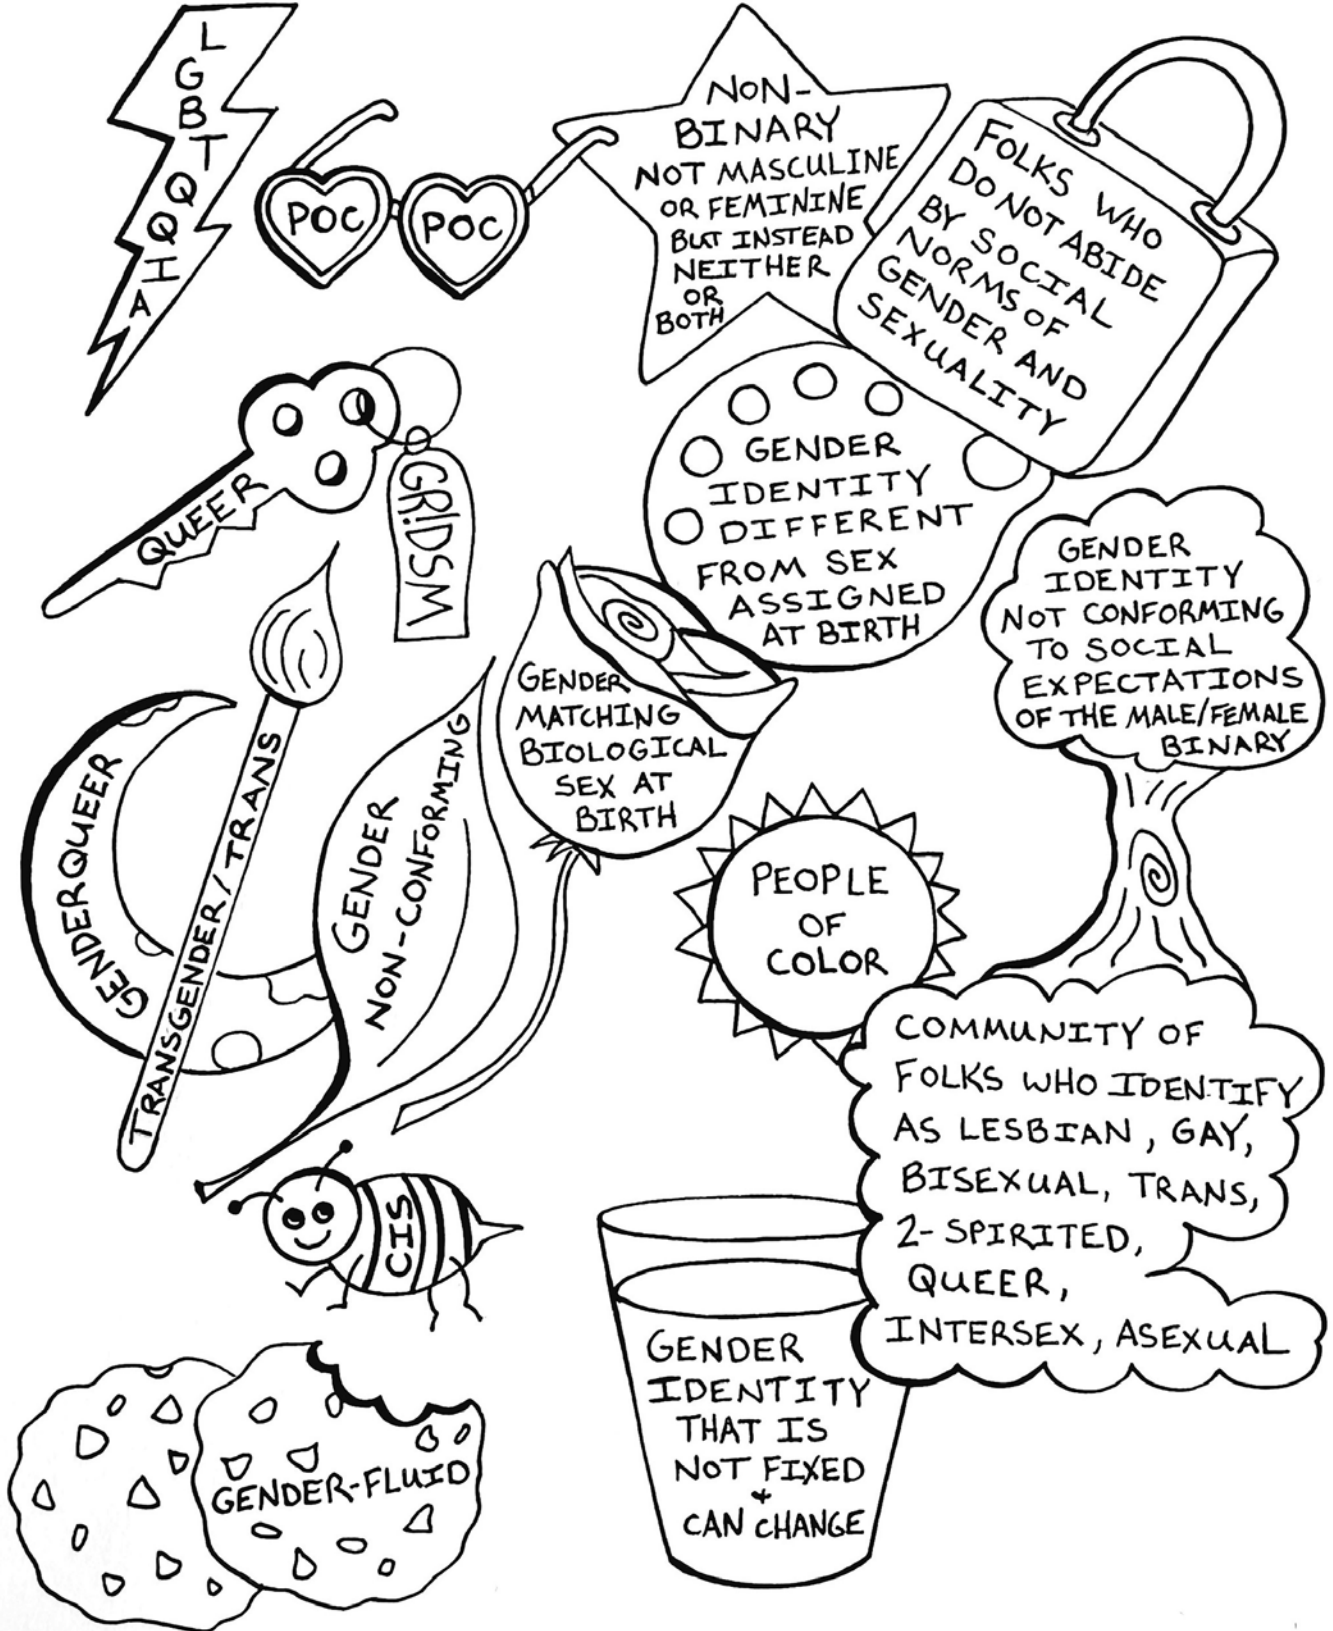 L
G
B
T
Q
Q
I
A
POC POC
NON-
BINARY
NOT MASCULINE
OR FEMININE
BUT INSTEAD
NEITHER
OR
BOTH
FOLKS WHO
DO NOT ABIDE
BY SOCIAL
NORMS OF
GENDER AND
SEXUALITY
QUEER
GRIDSM
GENDER
IDENTITY
DIFFERENT
FROM SEX
ASSIGNED
AT BIRTH
GENDER
IDENTITY
NOT CONFORMING
TO SOCIAL
EXPECTATIONS
OF THE MALE/FEMALE
BINARY
GENDERQUEER
TRANSGENDER/TRANS
GENDER
NON-CONFORMING
GENDER
MATCHING
BIOLOGICAL
SEX AT
BIRTH
PEOPLE
OF
COLOR
COMMUNITY OF
FOLKS WHO IDENTIFY
AS LESBIAN, GAY,
BISEXUAL, TRANS,
2-SPIRITED,
QUEER,
INTERSEX, ASEXUAL
CIS
GENDER
IDENTITY
THAT IS
NOT FIXED
+
CAN CHANGE
GENDER-FLUID